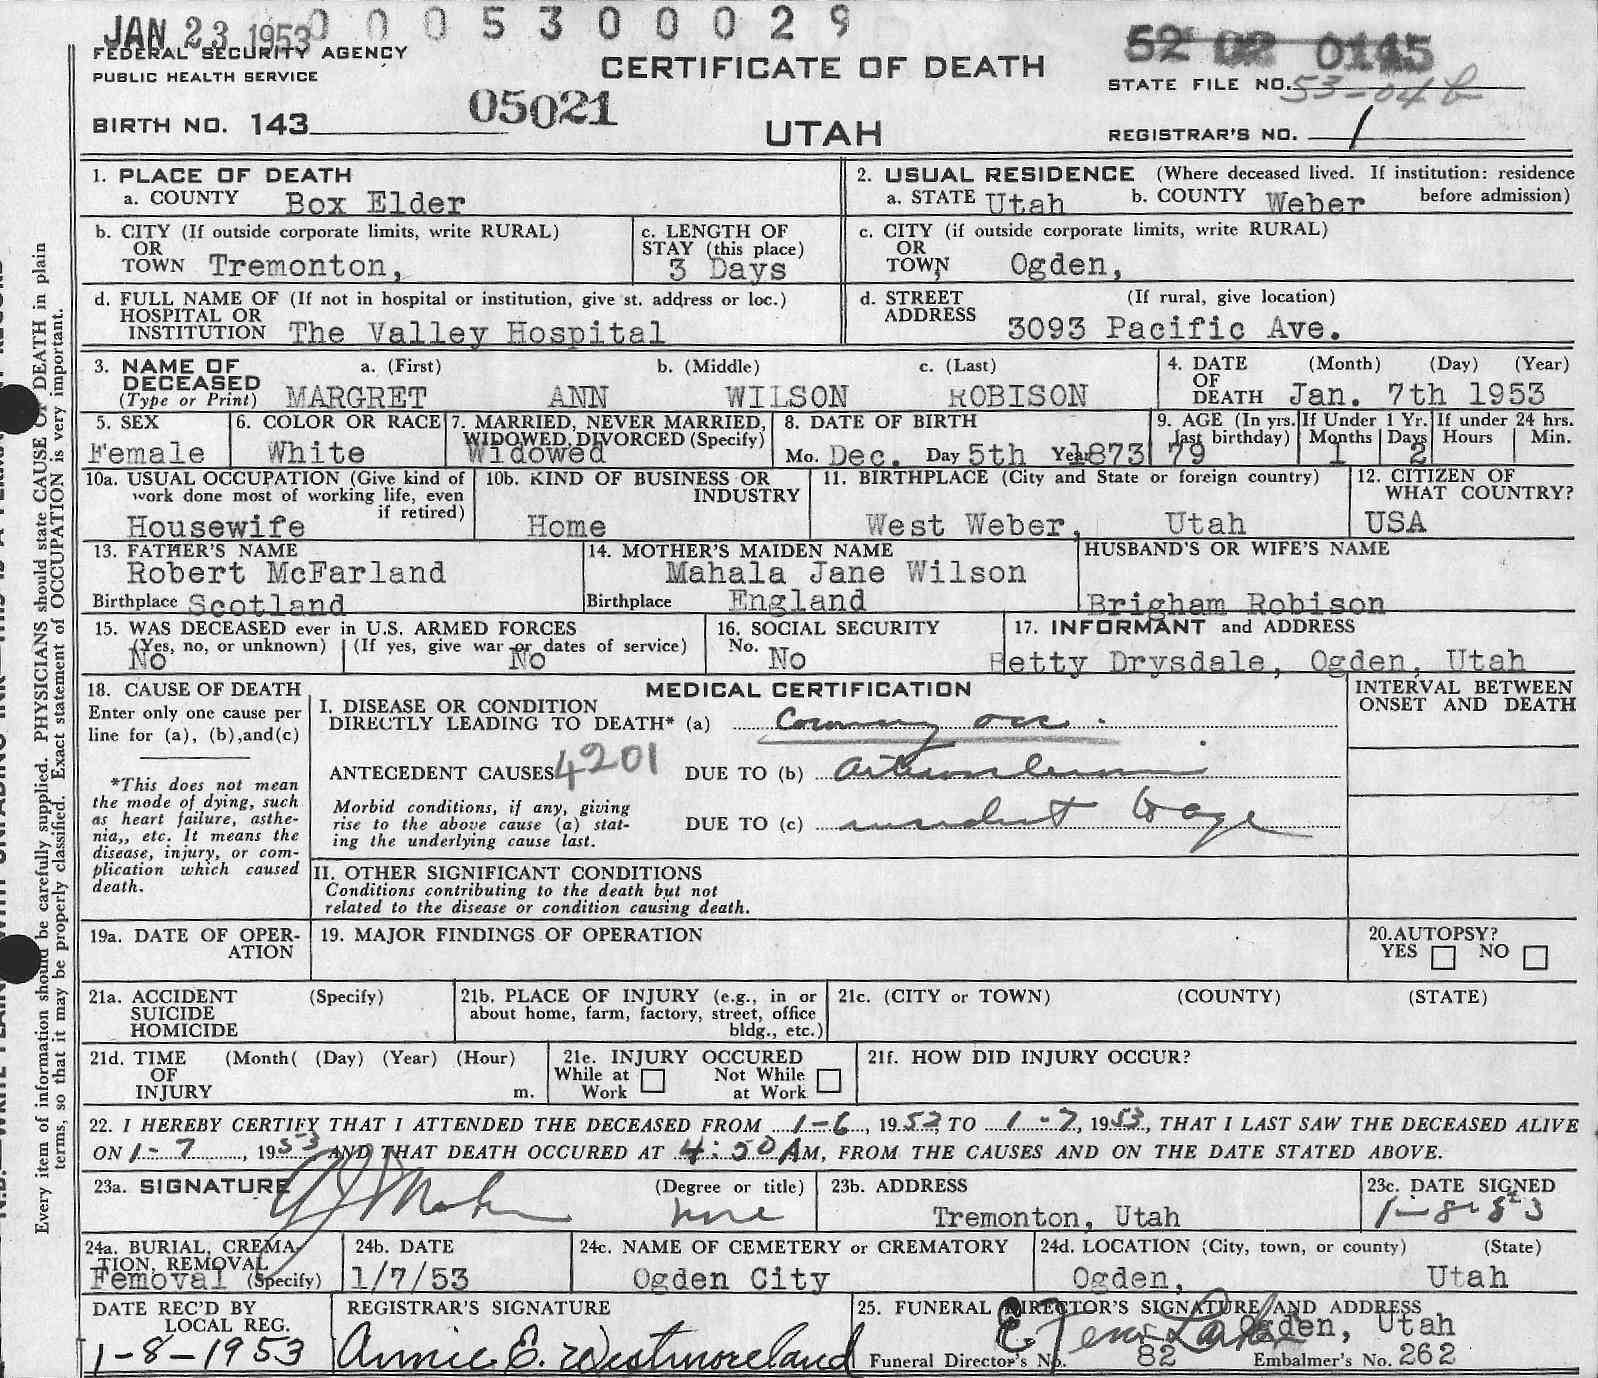 JAN 23 1953 0 0 0 5 3 0 0 0 2 9
FEDERAL SECURITY AGENCY
PUBLIC HEALTH SERVICE
CERTIFICATE OF DEATH
52 02 0145
STATE FILE NO. 53-04
BIRTH NO. 143 05021
UTAH
REGISTRAR'S NO. 1
1. PLACE OF DEATH
a. COUNTY Box Elder
2. USUAL RESIDENCE (Where deceased lived. If institution: residence
a. STATE Utah b. COUNTY Weber before admission)
b. CITY (If outside corporate limits, write RURAL)
OR
TOWN Tremonton,
c. LENGTH OF
STAY (this place)
3 Days
c. CITY (if outside corporate limits, write RURAL)
OR
TOWN Ogden,
d. FULL NAME OF (If not in hospital or institution, give st. address or loc.)
HOSPITAL OR
INSTITUTION The Valley Hospital
d. STREET (If rural, give location)
ADDRESS 3093 Pacific Ave.
3. NAME OF a. (First) b. (Middle) c. (Last)
DECEASED
(Type or Print) MARGRET ANN WILSON ROBISON
4. DATE (Month) (Day) (Year)
OF
DEATH Jan. 7th 1953
5. SEX
Female
6. COLOR OR RACE
White
7. MARRIED, NEVER MARRIED,
WIDOWED, DIVORCED (Specify)
Widowed
8. DATE OF BIRTH
Mo. Dec. Day 5th Year 1873
9. AGE (In yrs. last birthday) 79
If Under 1 Yr. Months 1 Days 2
If under 24 hrs. Hours Min.
10a. USUAL OCCUPATION (Give kind of
work done most of working life, even
if retired)
Housewife
10b. KIND OF BUSINESS OR
INDUSTRY
Home
11. BIRTHPLACE (City and State or foreign country)
West Weber, Utah
12. CITIZEN OF
WHAT COUNTRY?
USA
13. FATHER'S NAME
Robert McFarland
Birthplace Scotland
14. MOTHER'S MAIDEN NAME
Mahala Jane Wilson
Birthplace England
HUSBAND'S OR WIFE'S NAME
Brigham Robison
15. WAS DECEASED ever in U.S. ARMED FORCES
(Yes, no, or unknown) (If yes, give war or dates of service)
No No
16. SOCIAL SECURITY
No. No
17. INFORMANT and ADDRESS
Betty Drysdale, Ogden, Utah
18. CAUSE OF DEATH
Enter only one cause per
line for (a), (b),and(c)
*This does not mean
the mode of dying, such
as heart failure, asthe-
nia,, etc. It means the
disease, injury, or com-
plication which caused
death.
MEDICAL CERTIFICATION
I. DISEASE OR CONDITION
DIRECTLY LEADING TO DEATH* (a) Coronary occ.
ANTECEDENT CAUSES 4201 DUE TO (b)
Morbid conditions, if any, giving
rise to the above cause (a) stat-
ing the underlying cause last.
DUE TO (c) to age
INTERVAL BETWEEN
ONSET AND DEATH
II. OTHER SIGNIFICANT CONDITIONS
Conditions contributing to the death but not
related to the disease or condition causing death.
19a. DATE OF OPER-
ATION
19. MAJOR FINDINGS OF OPERATION
20.AUTOPSY?
YES NO
21a. ACCIDENT (Specify)
SUICIDE
HOMICIDE
21b. PLACE OF INJURY (e.g., in or
about home, farm, factory, street, office
bldg., etc.)
21c. (CITY or TOWN) (COUNTY) (STATE)
21d. TIME (Month( (Day) (Year) (Hour)
OF
INJURY m.
21e. INJURY OCCURED
While at Not While
Work at Work
21f. HOW DID INJURY OCCUR?
22. I HEREBY CERTIFY THAT I ATTENDED THE DECEASED FROM 1-6, 1953 TO 1-7, 1953, THAT I LAST SAW THE DECEASED ALIVE
ON 1-7, 1953 AND THAT DEATH OCCURED AT 4:50 AM, FROM THE CAUSES AND ON THE DATE STATED ABOVE.
23a. SIGNATURE (Degree or title)
23b. ADDRESS
Tremonton, Utah
23c. DATE SIGNED
1-8-53
24a. BURIAL, CREMA-
TION, REMOVAL
Removal (Specify)
24b. DATE
1/7/53
24c. NAME OF CEMETERY or CREMATORY
Ogden City
24d. LOCATION (City, town, or county) (State)
Ogden, Utah
DATE REC'D BY
LOCAL REG.
1-8-1953
REGISTRAR'S SIGNATURE
Annie E. Westmoreland
25. FUNERAL DIRECTOR'S SIGNATURE AND ADDRESS
Ogden, Utah
Funeral Director's No. 82 Embalmer's No. 262
Every item of information should be carefully supplied. PHYSICIANS should state CAUSE OF DEATH in plain
terms, so that it may be properly classified. Exact statement of OCCUPATION is very important.